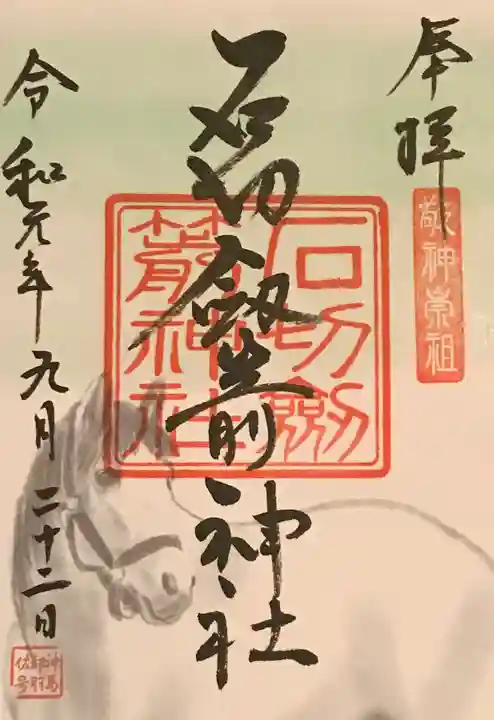 奉拝
敬神崇祖
石切劔箭神社
石切劔
箭神社
令和元年九月二十二日
神馬